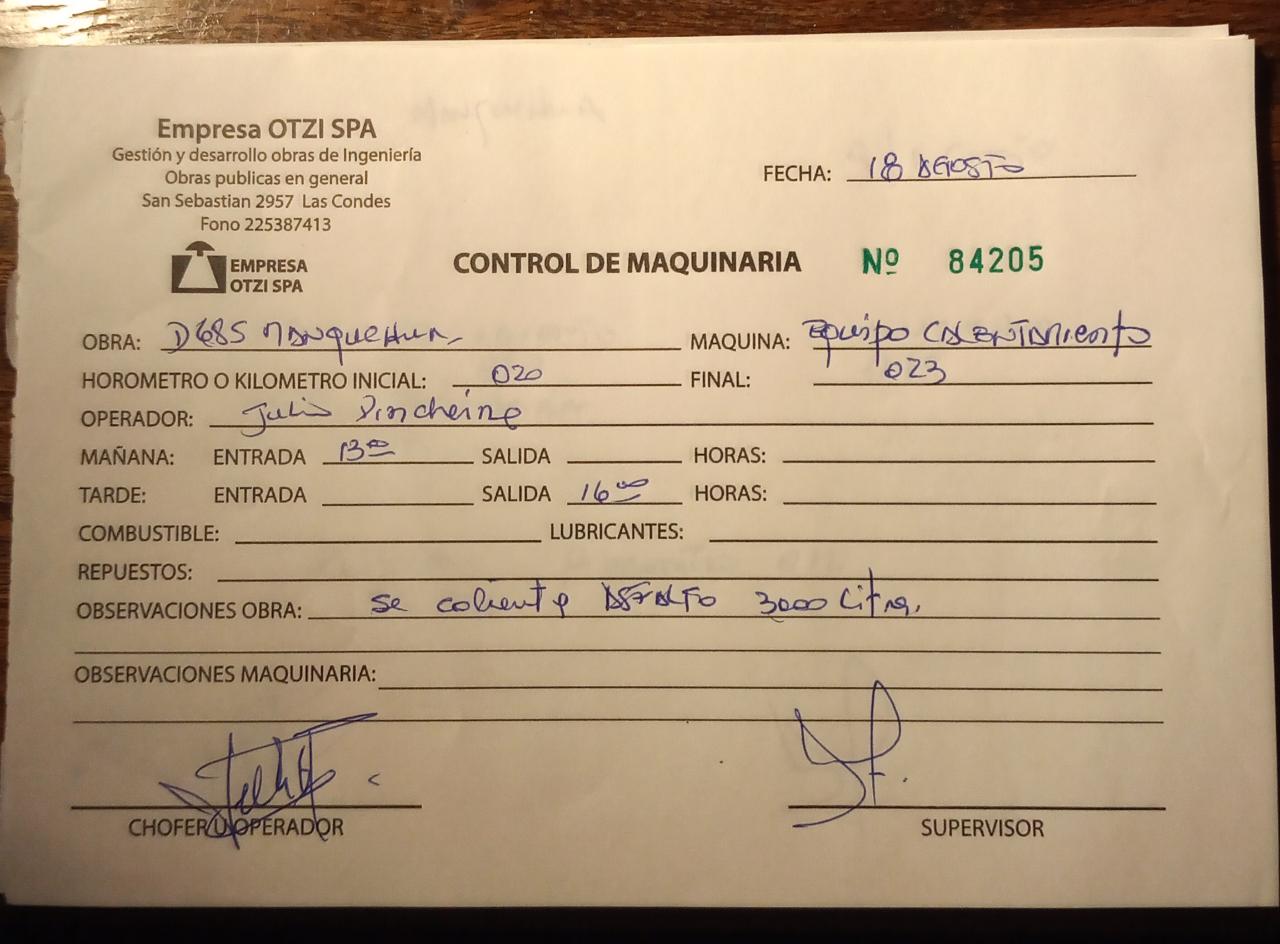 Empresa OTZI SPA
Gestión y desarrollo obras de Ingeniería
Obras publicas en general
San Sebastian 2957 Las Condes
Fono 225387413
FECHA: 18 AGOSTO
EMPRESA
OTZI SPA
CONTROL DE MAQUINARIA Nº 84205
OBRA: D685 MANQUEHUA MAQUINA: EQUIPO CALENTAMIENTO
HOROMETRO O KILOMETRO INICIAL: 020 FINAL: 023
OPERADOR: Julio
MAÑANA: ENTRADA 13:00 SALIDA HORAS:
TARDE: ENTRADA SALIDA 16:00 HORAS:
COMBUSTIBLE: LUBRICANTES:
REPUESTOS:
OBSERVACIONES OBRA: Se calienta ASFALTO 3000 Litros.
OBSERVACIONES MAQUINARIA:
CHOFER U OPERADOR SUPERVISOR